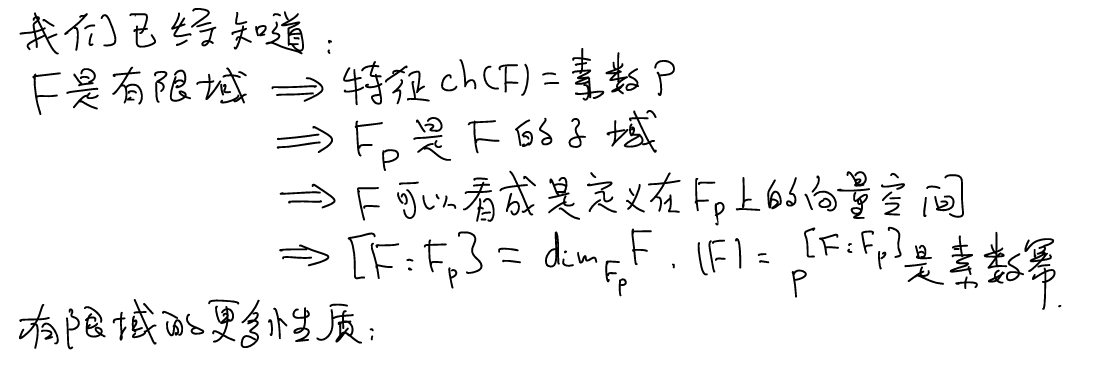 我们已经知道：
F是有限域 ⟹ 特征 ch(F) = 素数 p
⟹ F_p 是 F 的子域
⟹ F 可以看成是定义在 F_p 上的向量空间
⟹ [F:F_p] = dim_{F_p} F . |F| = p^{[F:F_p]} 是素数幂.
有限域的更多性质：